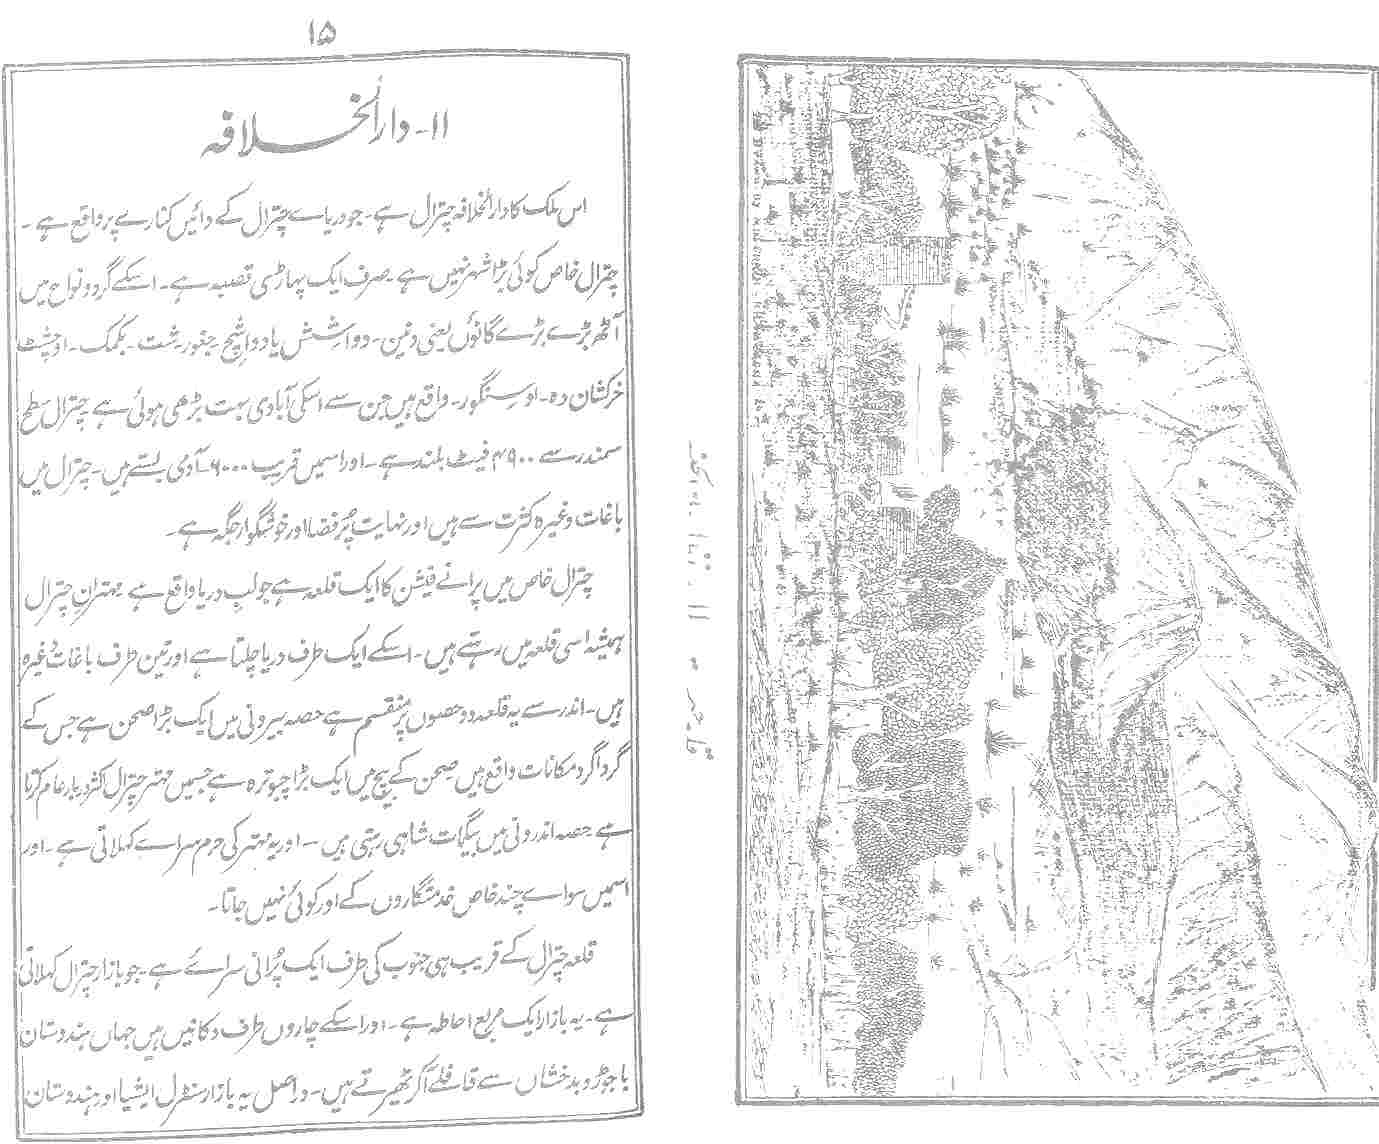 ۱۵
۱۱- دارالخلافہ
اس ملک کا دارالخلافہ چترال ہے۔ جو دریاے چترال کے دائیں کنارے پر واقع ہے۔
چترال خاص کوئی بڑا شہر نہیں ہے۔ صرف ایک پہاڑی قصبہ ہے۔ اسکے گرد و نواح میں
آٹھ بڑے بڑے گانوں یعنی دنین۔ دواشش یا دواشیح۔ جغور۔ شت۔ بکمک۔ اوچشٹ
خرکشان دہ۔ اوسنگور۔ واقع ہیں جن سے اسکی آبادی بہت بڑھی ہوئی ہے۔ چترال سطح
سمندر سے ۴۹۰۰ فیٹ بلند ہے۔ اور اسمیں قریب ۶۰۰۰ آدمی بستے ہیں۔ چترال میں
باغات وغیرہ کثرت سے ہیں اور نہایت پُرفضا اور خوشگوار جگہ ہے۔
چترال خاص میں پرانے فیشن کا ایک قلعہ ہے جو لبِ دریا واقع ہے مہترانِ چترال
ہمیشہ اسی قلعہ میں رہتے ہیں۔ اسکے ایک طرف دریا چلتا ہے اور تین طرف باغات وغیرہ
ہیں۔ اندر سے یہ قلعہ دو حصوں پر منقسم ہے حصہ بیرونی میں ایک بڑا صحن ہے جس کے
گرداگرد مکانات واقع ہیں صحن کے بیچ میں ایک بڑا چبوترہ ہے جسمیں مہتر چترال اکثر دربار عام کرتا
ہے حصہ اندرونی میں بیگمات شاہی رہتی ہیں۔ اور یہ مہتر کی حرم سراے کہلاتی ہے۔ اور
اسمیں سواے چند خاص خدمتگاروں کے اور کوئی نہیں جاتا۔
قلعہ چترال کے قریب ہی جنوب کی طرف ایک پُرانی سرائے ہے۔ جو بازار چترال کہلاتی
ہے۔ یہ بازار ایک مربع احاطہ ہے۔ اور اسکے چاروں طرف دکانیں ہیں جہاں ہندوستان
باجوڑ و بدخشاں سے قافلے آکر ٹھیرتے ہیں۔ دراصل یہ بازار سنٹرل ایشیا اور ہندوستان